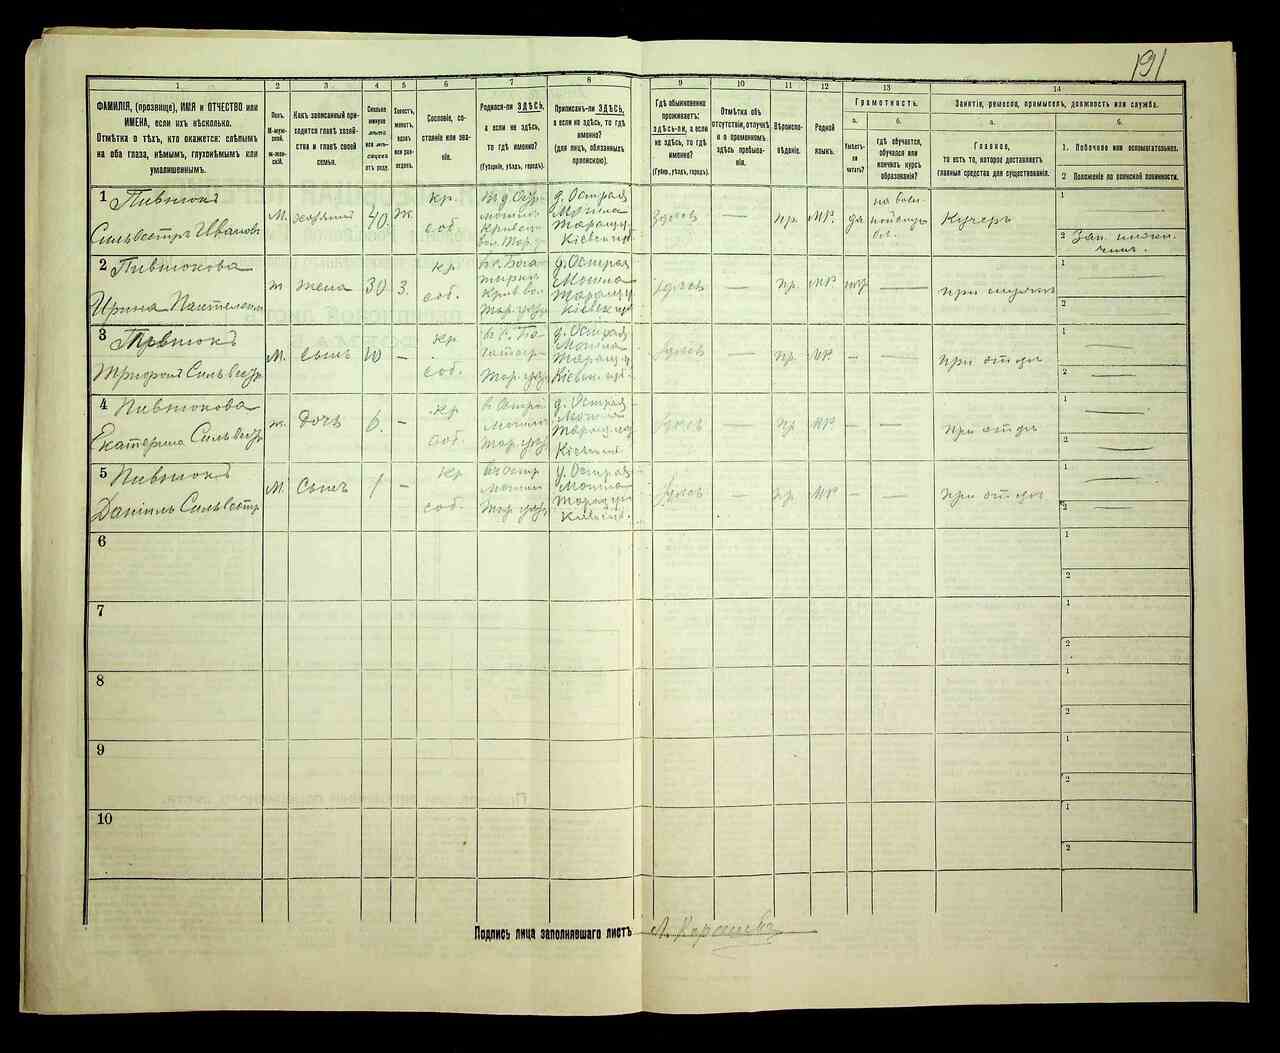 191
1 2 3 4 5 6 7 8 9 10 11 12 13 14
ФАМИЛІЯ, (прозвище), ИМЯ и ОТЧЕСТВО или
ИМЕНА, если ихъ нѣсколько.
Отмѣтка о тѣхъ, кто окажется: слѣпымъ
на оба глаза, нѣмымъ, глухонѣмымъ или
умалишеннымъ.
Полъ.
М-муж-
ской.
ж-жен-
скій.
Какъ записанный при-
ходится главѣ хозяй-
ства и главѣ своей
семьи.
Сколько
минуло
лѣтъ
или мѣ-
сяцевъ
отъ роду.
Холостъ,
женатъ,
вдовъ
или раз-
веденъ.
Сословіе, со-
стояніе или зва-
ніе.
Родился-ли ЗДѢСЬ,
а если не здѣсь,
то гдѣ именно?
(Губернія, уѣздъ, городъ).
Приписанъ-ли ЗДѢСЬ,
а если не здѣсь, то гдѣ
именно?
(для лицъ, обязанныхъ
припискою).
Гдѣ обыкновенно
проживаетъ:
здѣсь-ли, а если
не здѣсь, то гдѣ
именно?
(Губер., уѣздъ, городъ).
Отмѣтка объ
отсутствіи, отлучкѣ
и о временномъ
здѣсь пребыва-
ніи.
Вѣроиспо-
вѣданіе.
Родной
языкъ.
Грамотность.
а.
Умѣетъ-
ли
читать?
б.
гдѣ обучается,
обучался или
кончилъ курсъ
образованія?
Занятіе, ремесло, промыселъ, должность или служба.
а.
Главное,
то есть то, которое доставляетъ
главныя средства для существованія.
б.
1. Побочное или вспомогательное.
2 Положеніе по воинской повинности.
1 Пивнюкъ
Сильвестръ Иванов
М. хозяинъ 40. ж. кр. соб.
д. Острая
Могила
Таращ.
Кіевской
Здесь — пр. МР. да
Кучеръ
1 —
2 Зап. нижн.
чинъ.
2 Пивнюкова
Ирина Пантелеим
ж жена 30 з. кр соб.
д. Острая
Могила
Таращ
Кіевск
Здесь — пр. МР —
при мужѣ
1 —
2 —
3 Пивнюкъ
Трифонъ Сильвестр
М. сынъ 10 — кр. соб.
Тар. уезд
д. Острая
Могила
Таращ
Кіевск.
Здесь — пр МР — —
при отцѣ
1 —
2 —
4 Пивнюкова
Екатерина Сильвестр
ж. дочь 6. — кр соб.
Тар. уезд
д. Острая
Могила
Таращ
Кіевской
Здесь — пр МР — —
при отцѣ
1 —
2 —
5 Пивнюкъ
Даніилъ Сильвестр
М. сынъ 1 — кр соб.
Тар. уезд
д. Острая
Могила
Таращ
Кіевск.
Здесь — пр. МР — —
при отцѣ
1 —
2 —
6
1
2
7
1
2
8
1
2
9
1
2
10
1
2
Подпись лица заполнявшаго листъ